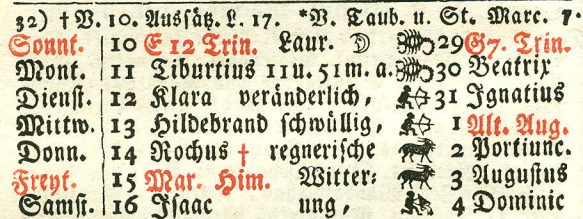 32) † V. 10. Aussätz. L. 17. *V. Taub. u. St. Marc. 7.
Sonnt. 10 E 12 Trin. Laur. ☽ 29 G7. Trin.
Mont. 11 Tiburtius 11 u. 51 m. a. 30 Beatrix
Dienst. 12 Klara veränderlich, 31 Ignatius
Mittw. 13 Hildebrand schwüllig, 1 Alt. Aug.
Donn. 14 Rochus † regnerische 2 Portiunc.
Freyt. 15 Mar. Him. Witter- 3 Augustus
Samst. 16 Isaac ung, 4 Dominic